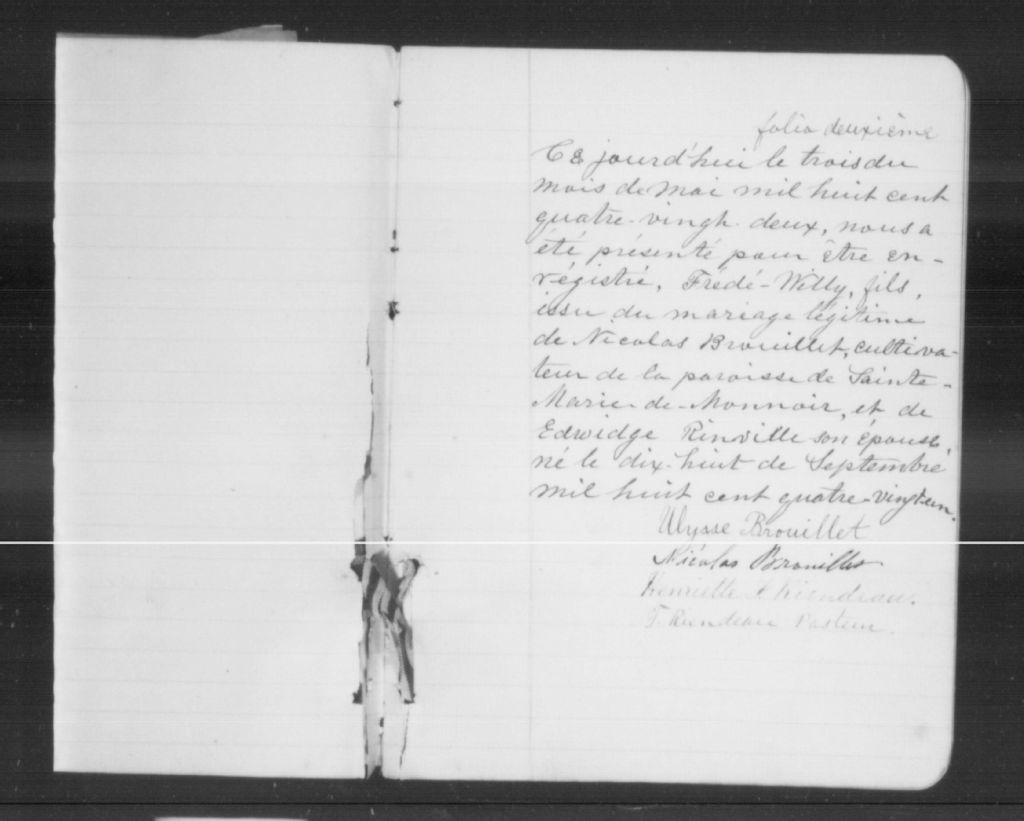 folio deuxième
Ce jourd'hui le trois du
mois de mai mil huit cent
quatre-vingt-deux, nous a
été présenté pour être en-
régistré, Frédé-Willy, fils,
issu du mariage légitime
de Nicolas Brouillet, cultiva-
teur de la paroisse de Sainte-
Marie-de-Monnoir, et de
Edwidge Rinville son épouse,
né le dix-huit de Septembre
mil huit cent quatre-vingt-un.
Ulysse Brouillet
Nicolas Brouillet
Henriette A Riendeau.
T. Riendeau Pasteur.